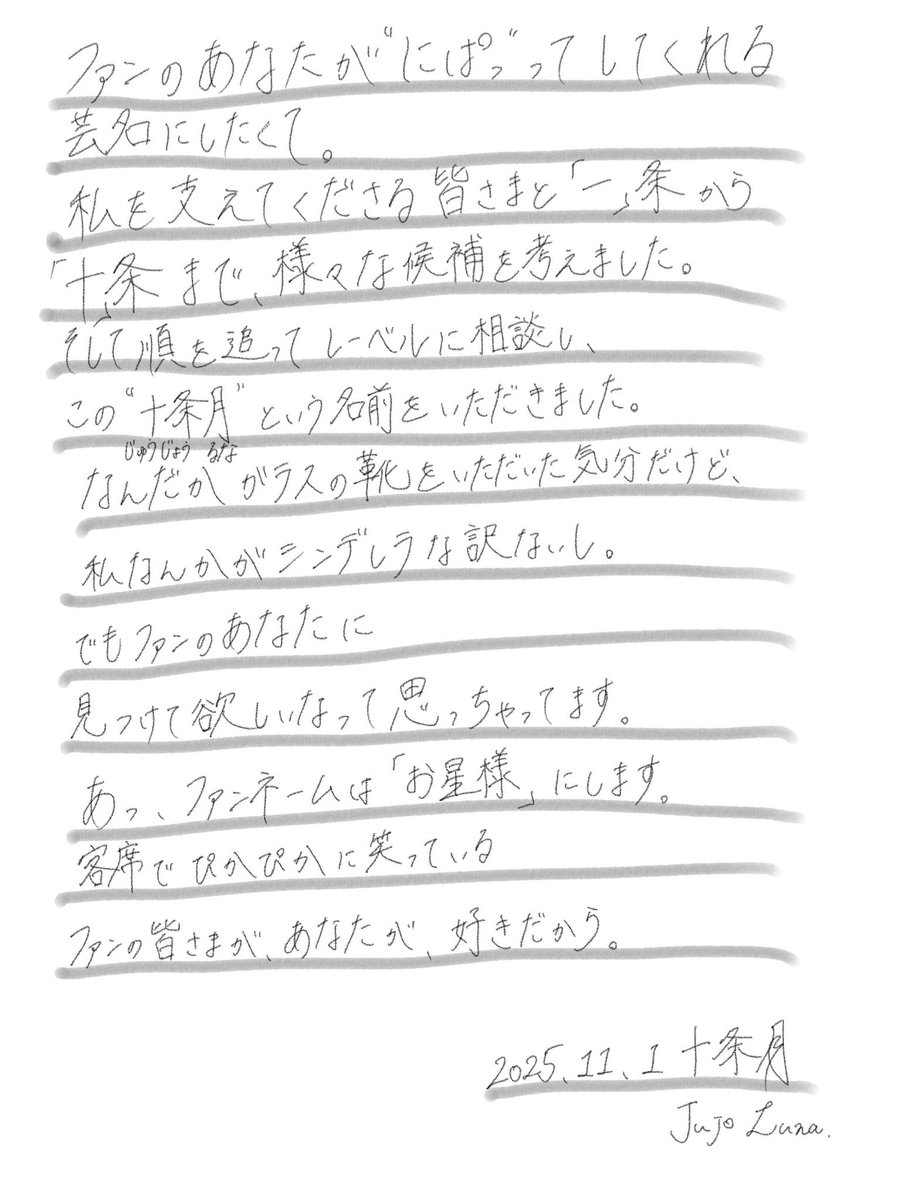 ファンのあなたが“にぱっ”ってしてくれる
芸名にしたくて。
私を支えてくださる皆さまと「一」条から
「十」条まで、様々な候補を考えました。
そして順を追ってレーベルに相談し、
この“十条月”という名前をいただきました。
じゅうじょう るな
なんだかガラスの靴をいただいた気分だけど、
私なんかがシンデレラな訳ないし。
でもファンのあなたに
見つけて欲しいなって思っちゃってます。
あっ、ファンネームは「お星様」にします。
客席でぴかぴかに笑っている
ファンの皆さまが、あなたが、好きだから。
2025.11.1 十条月
Jujo Luna.